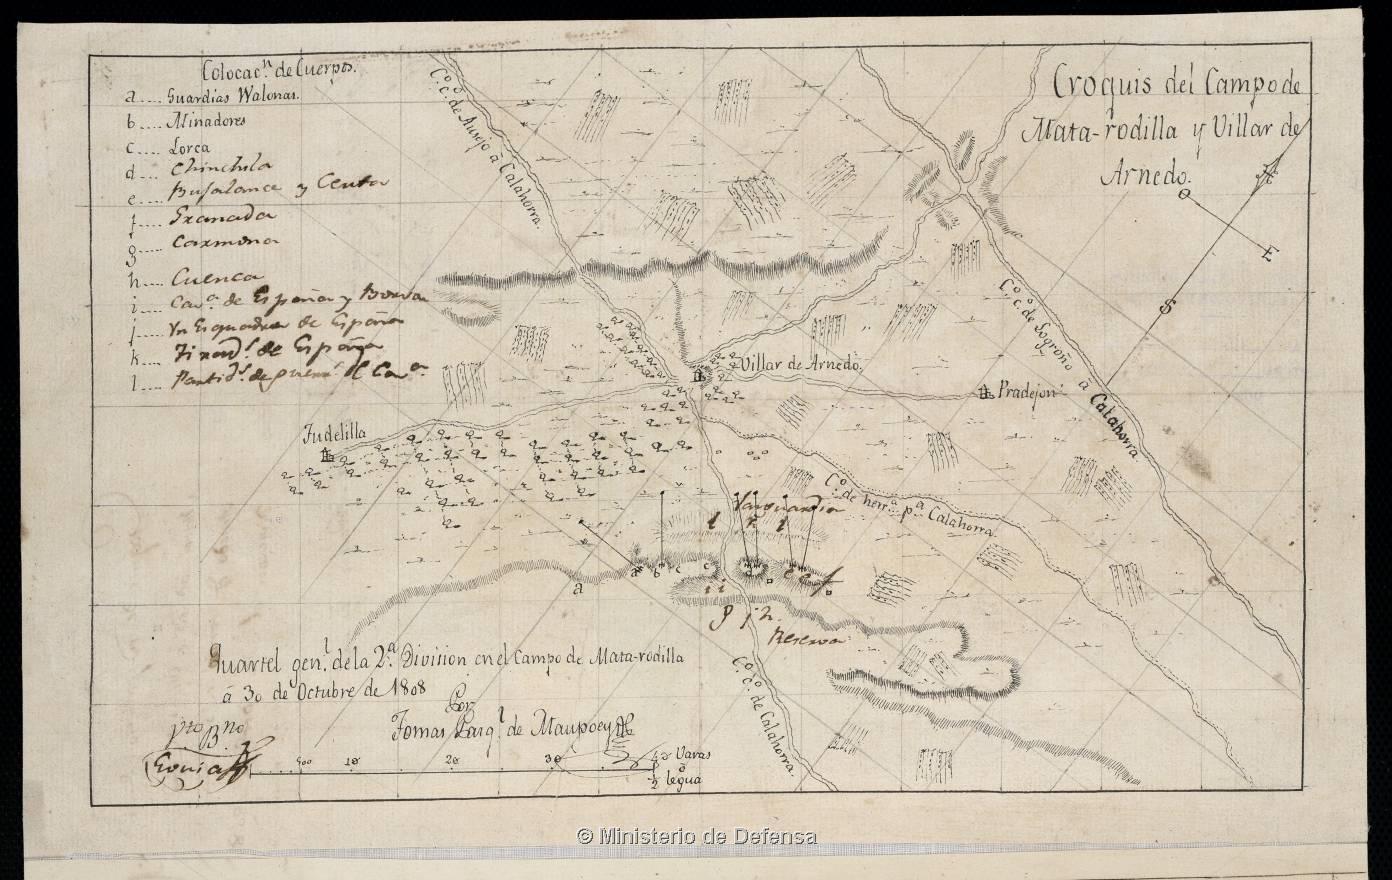 Colocac.ⁿ de Cuerpos.
a.... Guardias Walonas.
b.... Minadores
c.... Lorca
d.... Chinchila
e.... Bujalance y Ceuta
f.... Granada
g.... Carmona
h.... Cuenca
i.... Cav.ª de España y Borvon
j.... Un Esquadron de España
k.... Tirad.s de España
l.... Partid.s de guerr.s de Cav.ª
Croquis del Campo de
Mata-rodilla y Villar de
Arnedo.
O
E
S
C.º c.º de Ausejo à Calahorra.
C.º c.º de Logroño à Calahorra.
Villar de Arnedo.
Pradejon
Tudelilla
C.º de herr.ª p.ª Calahorra.
Vanguardia
l k l
a
a b c c d e e f
i i
g j h.
Reserva
C.º c.º de Calahorra.
Quartel gen.l de la 2.ª Division en el Campo de Mata-rodilla
à 30 de Octubre de 1808
Por
Tomas Pasq.l de Maupoey
V.to B.no
500 10 20 30 40 Varas
ò
½ legua
© Ministerio de Defensa